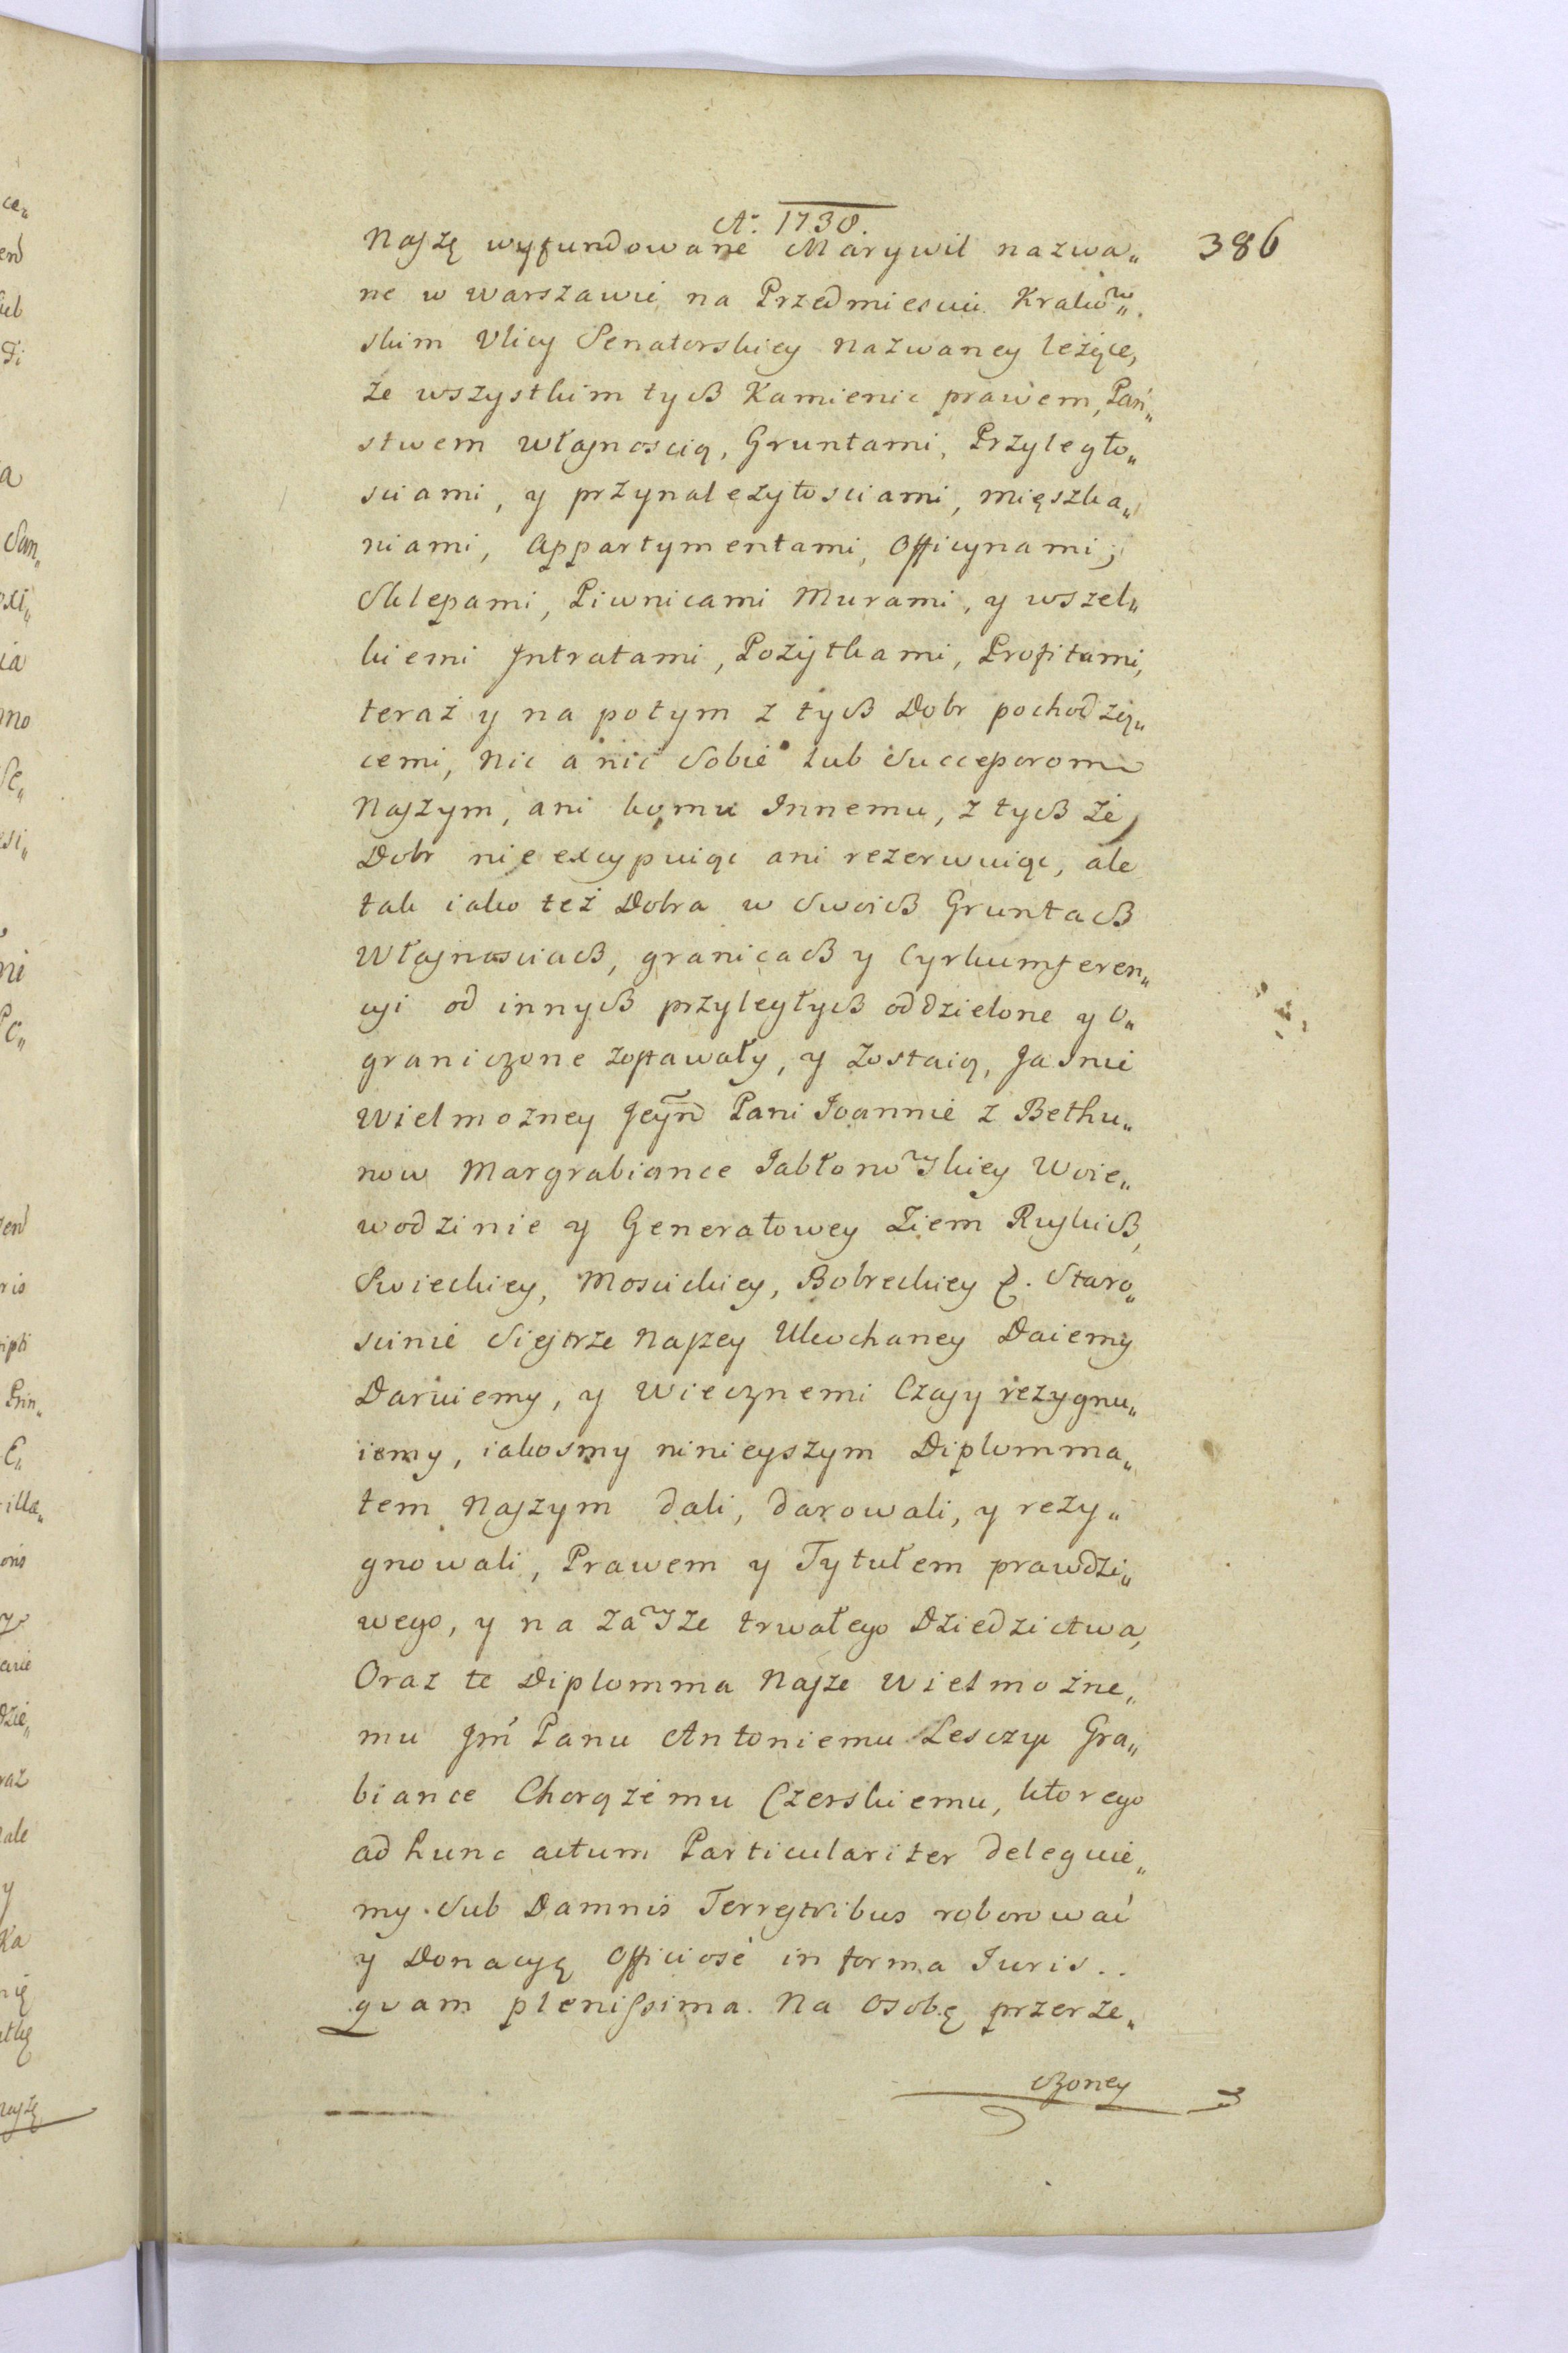 A. 1738.
386
Naszę wyfundowane Marywil nazwa„
ne w Warszawie na Przedmiesciu Krakow„
skim Vlicy Senatorskiey nazwaney leżące,
ze wszystkim tych Kamienic prawem, Pań„
stwem własnoscią, Gruntami, Przyległo„
sciami, y przynależytosciami, mięszka„
niami, Appartymentami, Officynami,
Sklepami, Piwnicami Murami, y wszel„
kiemi Intratami, Pożytkami, Profitami,
teraz y na potym z tych Dobr pochodzą„
cemi, nic a nic Sobie lub Successorom
Naszym, ani komu Innemu, z tych że
Dobr nie excypuiąc ani rezerwuiąc, ale
tak iako też Dobra w Swoich Gruntach
Własnosciach, granicach y Cyrkumferen„
cyi od innych przyległych oddzielone y o„
graniczone zostawały, y zostaią, Jasnie
Wielmożney Jeymć Pani Joannie z Bethu„
now Margrabiance Jabłonowskiey Woie„
wodzinie y Generałowey Ziem Ruskich,
Swieckiey, Moscickiey, Bobreckiey &. Staro„
scinie Siestrze Naszey Ukochaney Daiemy
Daruiemy, y Wiecznemi Czasy rezygnu„
iemy, iakosmy ninieyszym Diplomma„
tem Naszym dali, darowali, y rezy„
gnowali, Prawem y Tytułem prawdzi„
wego, y na zawsze trwałego Dziedzictwa,
Oraz te Diplomma Nasze Wielmożne„
mu Jmć Panu Antoniemu Lesczyc Gra„
biance Chorążemu Czerskiemu, ktorego
ad hunc actum Particulariter deleguie„
my. Sub Damnis Terrestribus roborować
y Donacyę Officiose in forma Juris..
quam plenissima. Na Osobę przerze„
czoney